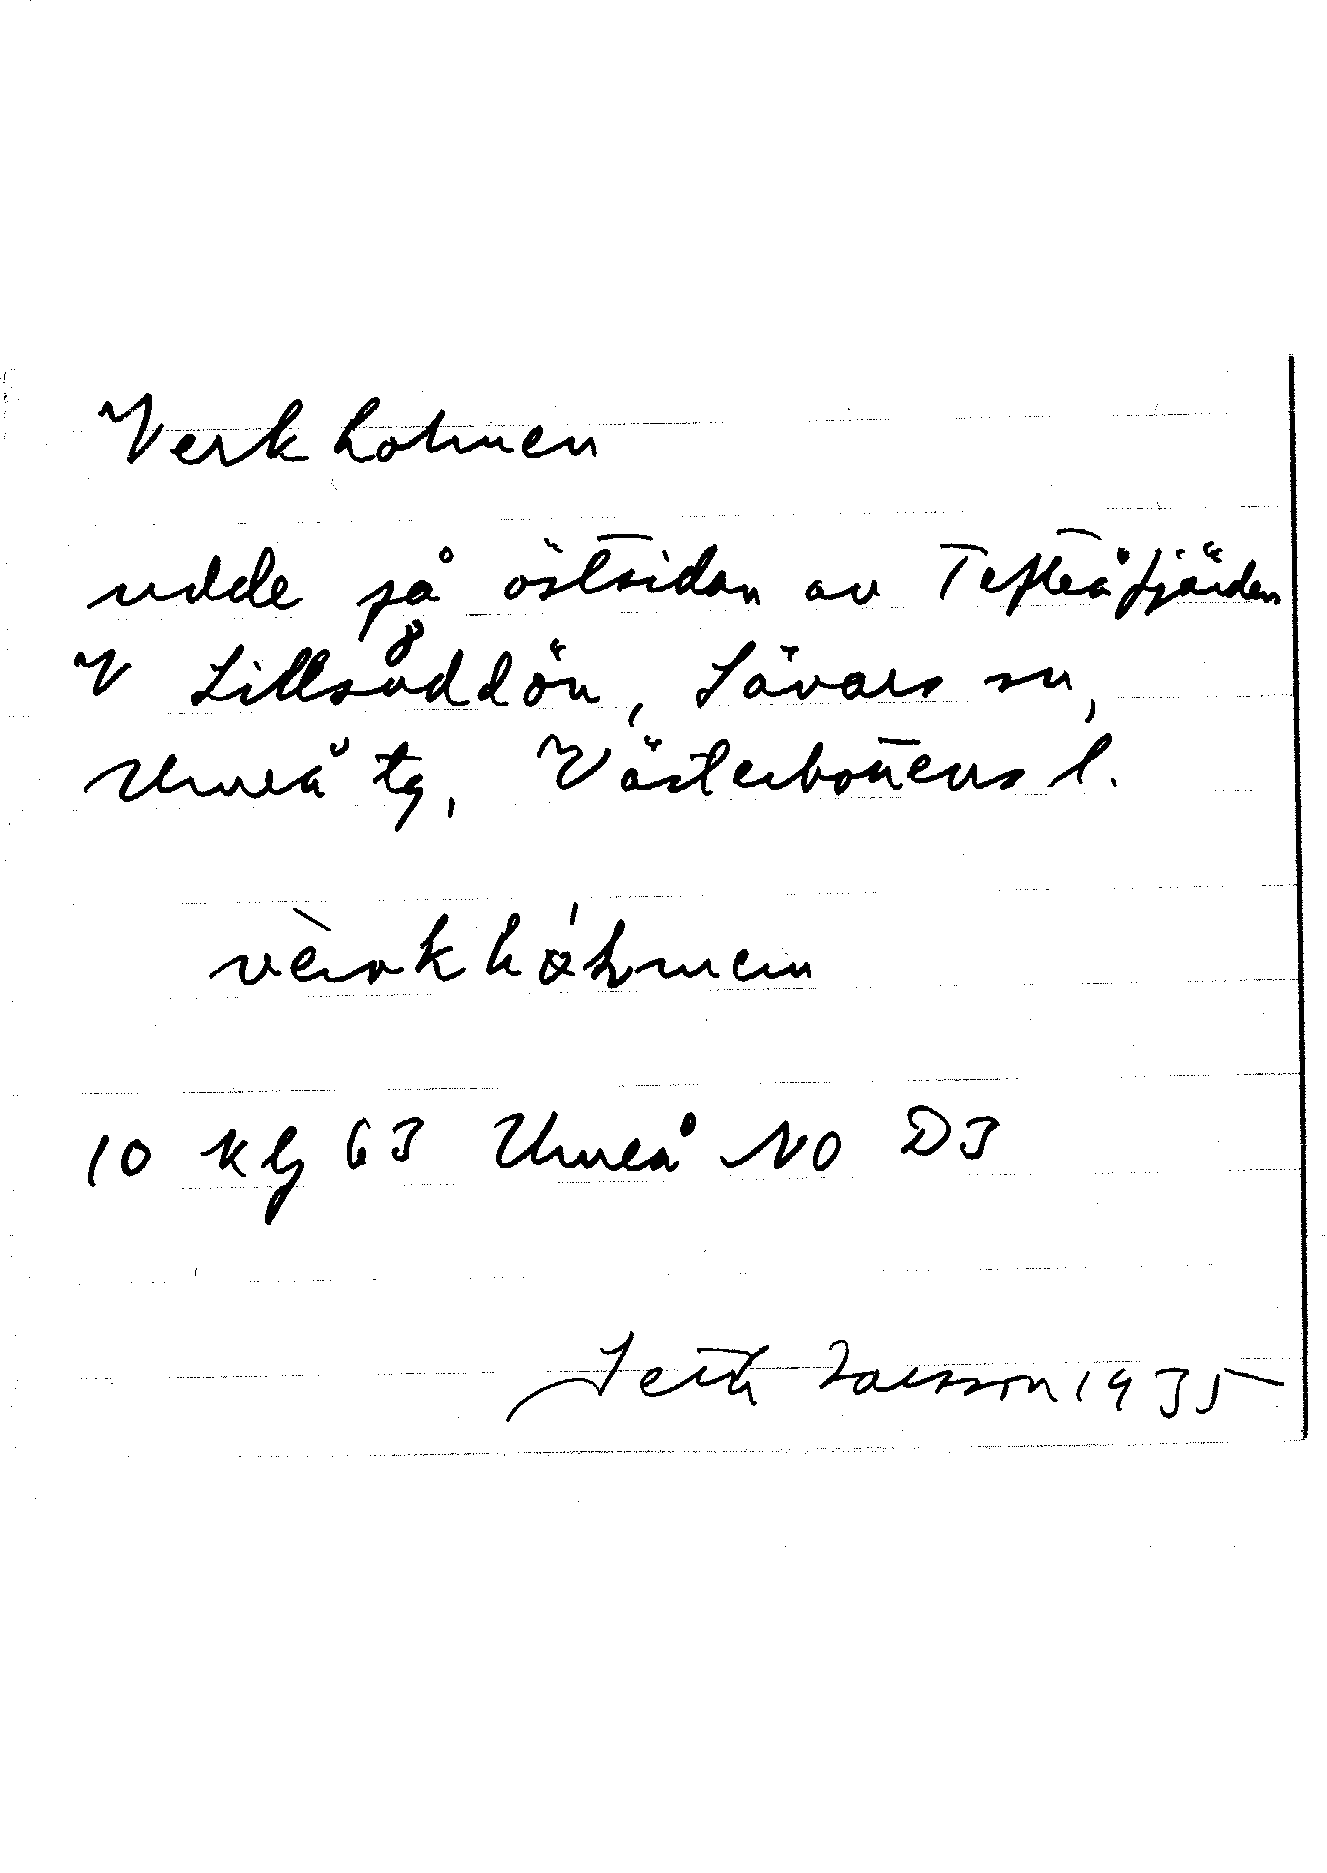 Verkholmen
udde på östsidan av Tefteåfjärden
V Lillsåddön, Sävars sn,
Umeå tg, Västerbottens l.
vèrkhólmen
10 kg 63 Umeå NO D3
Seth Larsson 1935